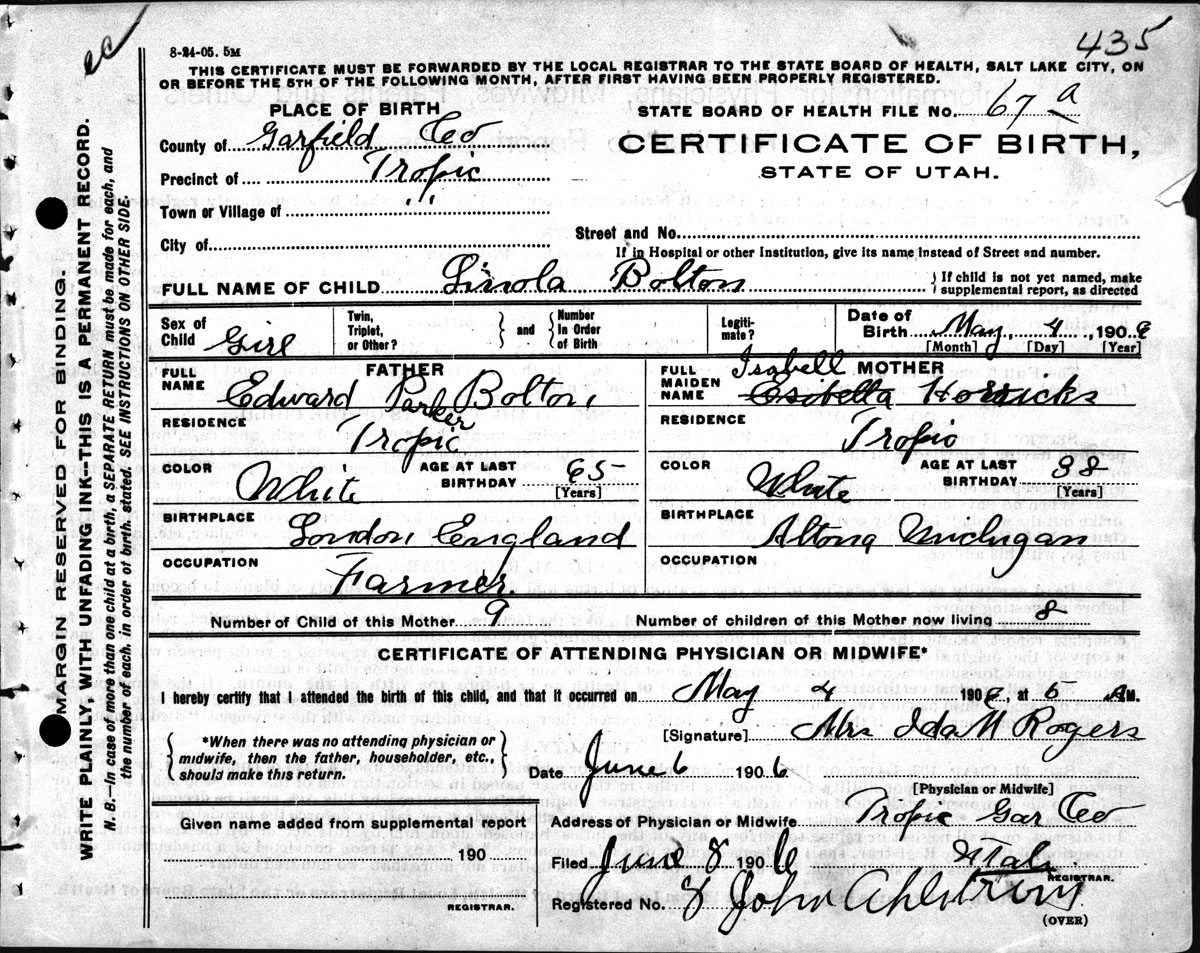 435
8-24-05. 5M
THIS CERTIFICATE MUST BE FORWARDED BY THE LOCAL REGISTRAR TO THE STATE BOARD OF HEALTH, SALT LAKE CITY, ON
OR BEFORE THE 5TH OF THE FOLLOWING MONTH, AFTER FIRST HAVING BEEN PROPERLY REGISTERED.
PLACE OF BIRTH
STATE BOARD OF HEALTH FILE No. 67 a
County of Garfield Co
CERTIFICATE OF BIRTH,
Precinct of Tropic
STATE OF UTAH.
Town or Village of " "
City of
Street and No.
If in Hospital or other Institution, give its name instead of Street and number.
FULL NAME OF CHILD Linola Bolton
If child is not yet named, make
supplemental report, as directed
Sex of Child Girl
Twin, Triplet, or Other? and Number in Order of Birth
Legitimate?
Date of Birth May 4, 190
[Month] [Day] [Year]
FATHER
FULL NAME Edward Parker Bolton
RESIDENCE Tropic
COLOR White AGE AT LAST BIRTHDAY 65 [Years]
BIRTHPLACE London England
OCCUPATION Farmer.
MOTHER
FULL MAIDEN NAME Isabell Esibella Horricks
RESIDENCE Tropic
COLOR White AGE AT LAST BIRTHDAY 38 [Years]
BIRTHPLACE Altona Michigan
OCCUPATION
Number of Child of this Mother 9
Number of children of this Mother now living 8
CERTIFICATE OF ATTENDING PHYSICIAN OR MIDWIFE*
I hereby certify that I attended the birth of this child, and that it occurred on May 4 190 at 6 AM.
*When there was no attending physician or
midwife, then the father, householder, etc.,
should make this return.
[Signature] Mrs Ida M Rogers
Date June 6 1906
[Physician or Midwife]
Given name added from supplemental report
190
REGISTRAR.
Address of Physician or Midwife Tropic Gar Co
Utah.
Filed June 8 1906
REGISTRAR.
Registered No. 8 John Ahlstrom
(OVER)
MARGIN RESERVED FOR BINDING.
WRITE PLAINLY, WITH UNFADING INK--THIS IS A PERMANENT RECORD.
N. B.—In case of more than one child at a birth, a SEPARATE RETURN must be made for each, and
the number of each, in order of birth, stated. SEE INSTRUCTIONS ON OTHER SIDE.